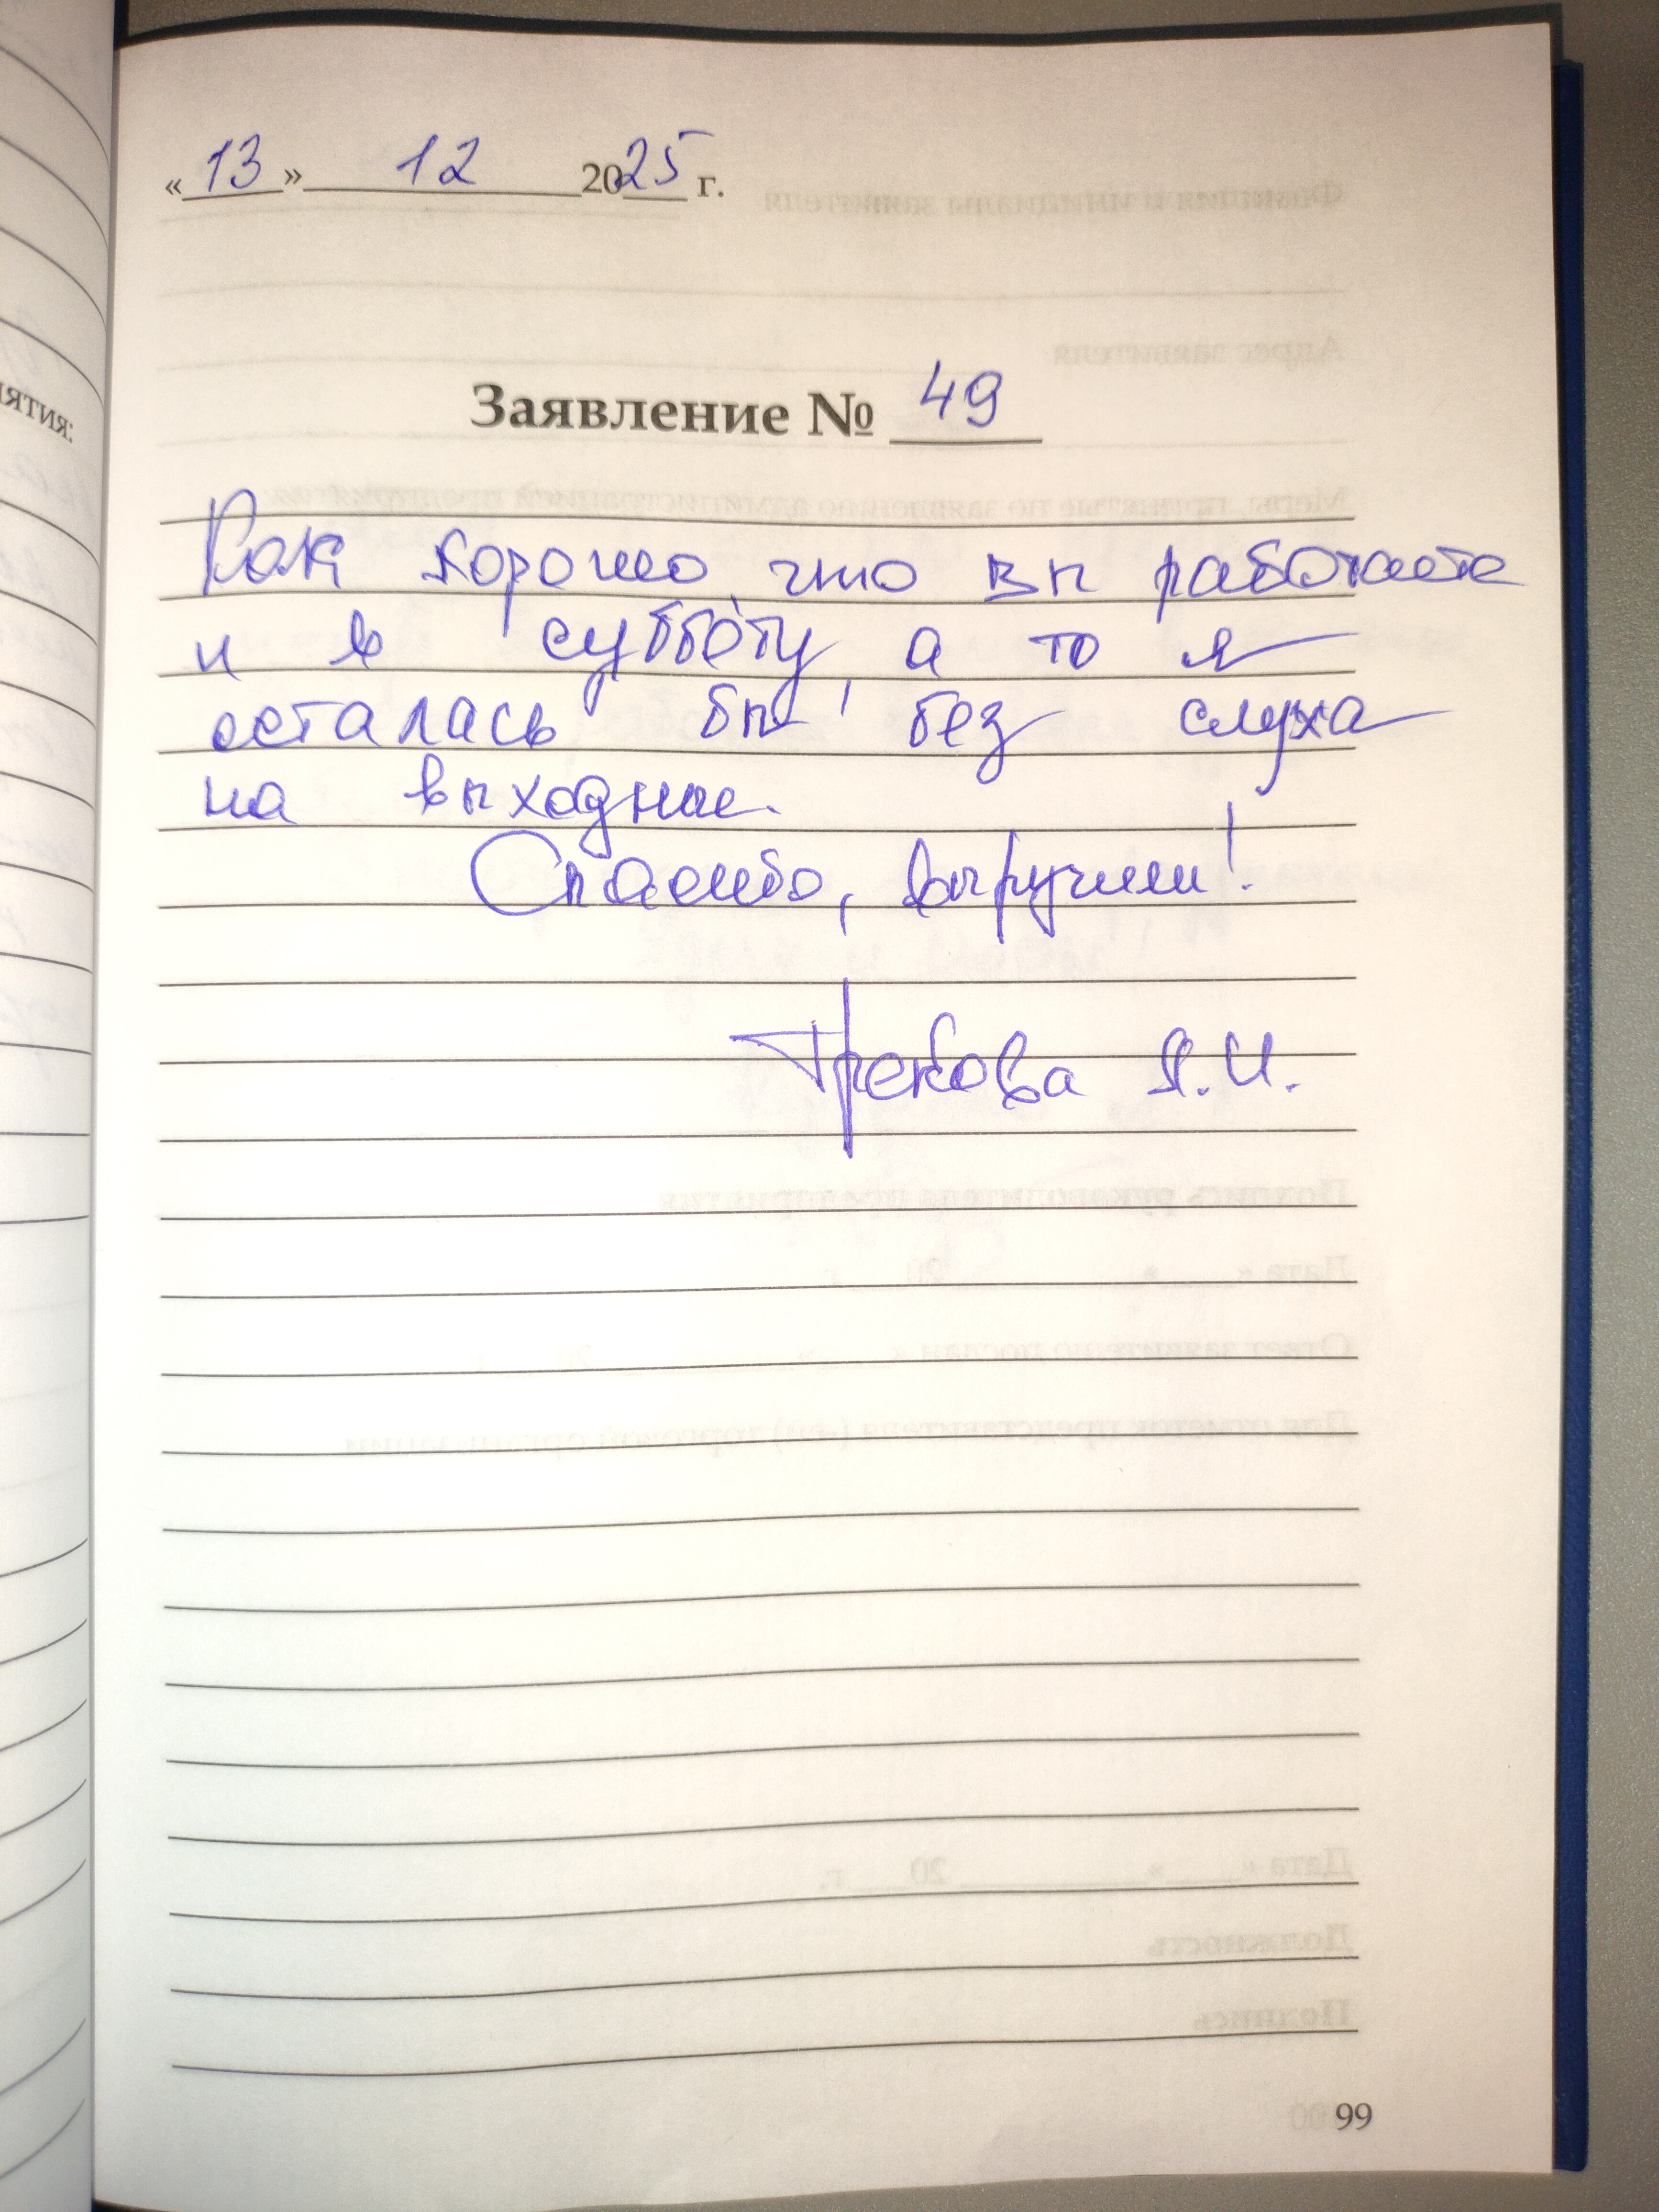 «13» 12 2025 г.
Заявление № 49
Как хорошо, что вы работаете
и в субботу, а то я
осталась бы без слуха
на выходные.
Спасибо, выручили!
Грекова Я.И.
ятия:
99